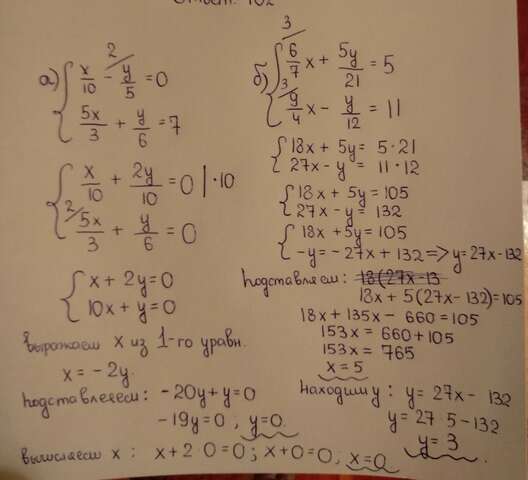 Ответ: 102
а) { x/10 - y/5 = 0
5x/3 + y/6 = 7
{ x/10 + 2y/10 = 0 | · 10
5x/3 + y/6 = 0
{ x + 2y = 0
10x + y = 0
выражаем x из 1-го уравн.
x = -2y.
Подставляем: -20y + y = 0
-19y = 0 ; y = 0.
вычисляем x : x + 2 · 0 = 0 ; x + 0 = 0, x = 0
б) { 6/7 x + 5y/21 = 5
9/4 x - y/12 = 11
{ 18x + 5y = 5 · 21
27x - y = 11 · 12
{ 18x + 5y = 105
27x - y = 132
{ 18x + 5y = 105
-y = -27x + 132 => y = 27x - 132
Подставляем: 18(27x - 13
18x + 5(27x - 132) = 105
18x + 135x - 660 = 105
153x = 660 + 105
153x = 765
x = 5
Находим y : y = 27x - 132
y = 27 · 5 - 132
y = 3